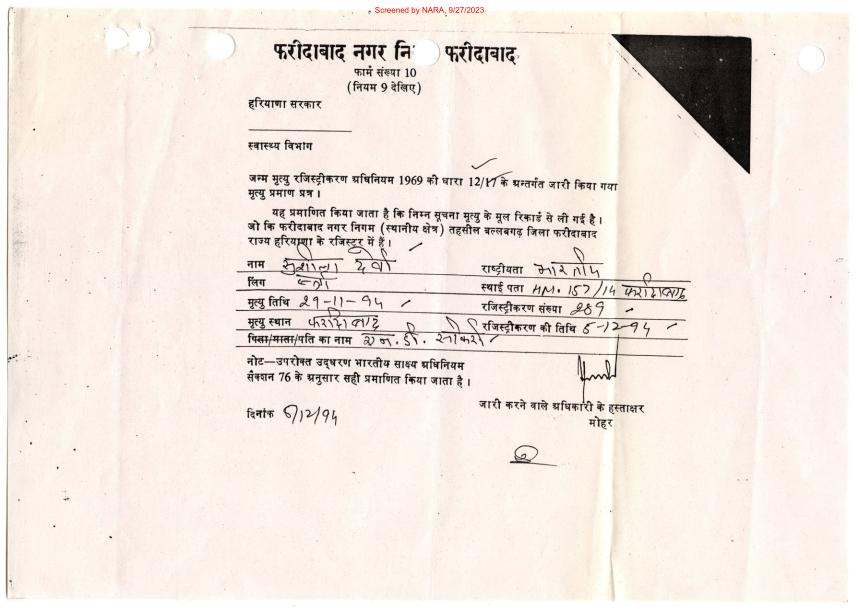 Screened by NARA, 9/27/2023
फरीदाबाद नगर नि फरीदाबाद
फार्म संख्या 10
(नियम 9 देखिए)
हरियाणा सरकार
स्वास्थ्य विभाग
जन्म मृत्यु रजिस्ट्रीकरण अधिनियम 1969 की धारा 12/17 के अन्तर्गत जारी किया गया
मृत्यु प्रमाण प्रत्र ।
यह प्रमाणित किया जाता है कि निम्न सूचना मृत्यु के मूल रिकार्ड से ली गई है ।
जो कि फरीदाबाद नगर निगम (स्थानीय क्षेत्र) तहसील बल्लबगढ़ जिला फरीदाबाद
राज्य हरियाणा के रजिस्टर में हैं ।
नाम सुशीला देवी राष्ट्रीयता भारतीय
लिंग स्त्री स्थाई पता HM. 157/14 फरीदाबाद
मृत्यु तिथि 29-11-94 रजिस्ट्रीकरण संख्या 289
मृत्यु स्थान फरीदाबाद रजिस्ट्रीकरण की तिथि 5-12-94
पिता/माता/पति का नाम एन. डी.
नोट—उपरोक्त उद्धरण भारतीय साक्ष्य अधिनियम
सैक्शन 76 के अनुसार सही प्रमाणित किया जाता है ।
जारी करने वाले अधिकारी के हस्ताक्षर
मोहर
दिनांक 6/12/94